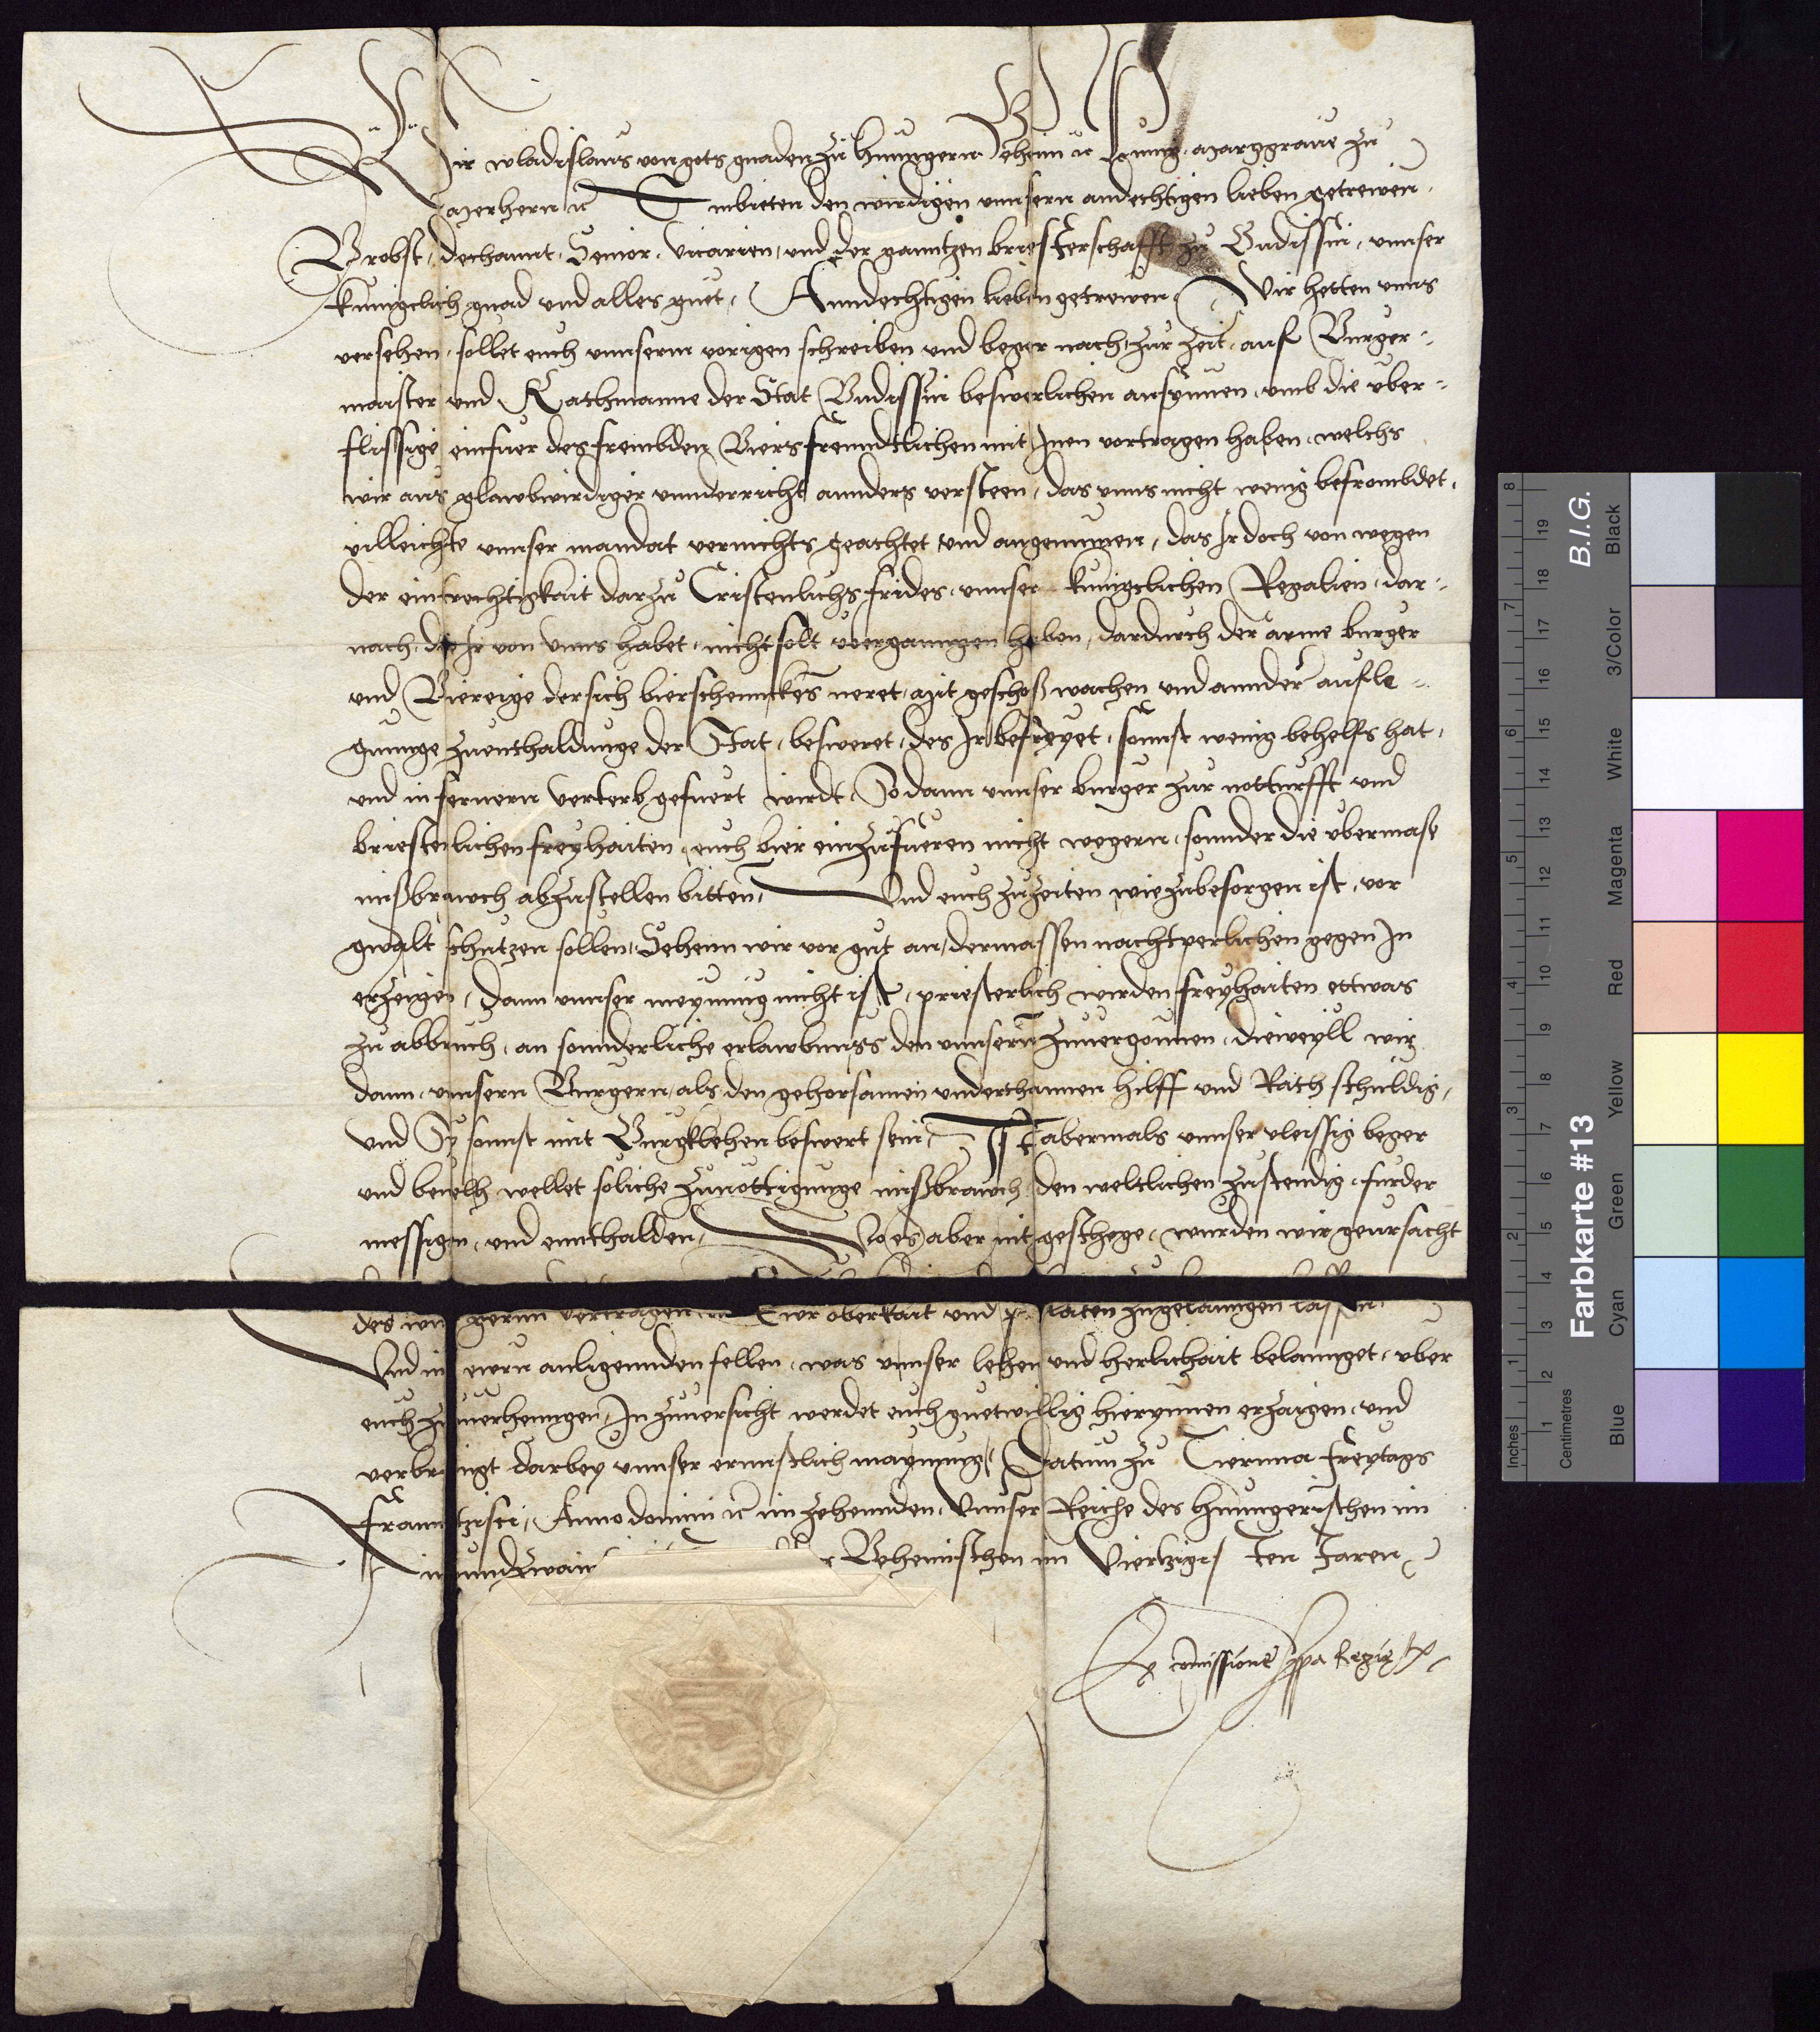 Wir wladislaus von gots gnaden zu Hunngern Beheim ꝛc kunig Marggraue zu
Merhern ꝛc Embieten den wirdigen vnnsern andechtigen lieben getrewen.
Brobst, dechannt, Senior, Vicarien, vnd der ganntzen briesterschafft zu Budissin, vnnser
kunigclich gnad vnd alles guet, Anndechtigen lieben getrewen, Wir hetten vnns
versehen, sollet euch vnnserm vorigen schreiben vnd beger nach, zur zeit, auf Burger-
maister vnd Rathmanne der Stat Budissin beswerlichen ansynnen, vmb die vber-
flissige einfuer des frembden Biers freundtlichen mit Inen vortragen haben, welchs
wir aus glawbwirdiger vnnderricht annders versteen, das vnns nicht wenig befrombdet,
villeichte vnnser mandat vernichts geachtet vnd angenumen, das Ir doch von wegen
der eintrechtigkait darzu Cristenlichs frides, vnnser kunigclichen Regalien, dar-
nach, die Ir von vnns habet, nicht solt vbergangen haben, dardurch der arme burger
vnd Biereige der sich bierschennckes neret, mit geschoß wachen vnd annder aufle-
gunnge zuenthaldunge der Stat, besweret, des Ir befreyet, sonnst wenig behelfs hat,
vnd in fernern verterb gefuert wirdt, So dann vnnser burger zur notturfft vnd
briesterlichen freyhaiten, euch bier einzufueren nicht wegern, sonnder die vbermase
mißbrawch abzustellen bitten, Vnd euch zuzeiten wie zubesorgen ist, vor
gwalt schutzen sollen, Sehenn wir vor gut an, dermassen nachtperlichen gegen In
erzeigen, dann vnnser meynung nicht ist, priesterlich wirden freyhaiten ettwas
zu abbruch, an sonnderliche erlawbnuss den vnnsern zuuergonnen, dieweyll wir
dann, vnnsern Burgern, als den gehorsamen vnderthannen hilff vnd Rath schuldig,
vnd Sy sonnst mit Burgklehen beswert sein, Ist abermals vnnser vleissig beger
vnd beuelh wellet soliche zunottigunge mißbrawch, den weltlichen zustendig, furder
messigen, vnd ennthalden, Wo es aber nit geschege, wurden wir geursacht
des vertragen Ewr oberkait vnd zugelanngen lassen,
Vnd in ewrn anligennden fellen, was vnnser lehen vnd herlichait belannget, vber
euch zuuerhenngen, In zuuersicht werdet euch guetwillig hierynnen erzaigen, vnd
verbringt darbey vnnser ernnstlich maynung, Datum zu Tierna freytags
Franntzisci, Anno domini ꝛc im zehennden, Vnnser Reiche des Hunngerischen im
Behemischen im Viertzigisten Jaren,
Ex comissione ppa Regie Mtis
B.I.G.
Farbkarte #13
Inches
1 2 3 4 5 6 7 8
Centimetres
1 2 3 4 5 6 7 8 9 10 11 12 13 14 15 16 17 18 19
Blue Cyan Green Yellow Red Magenta White 3/Color Black